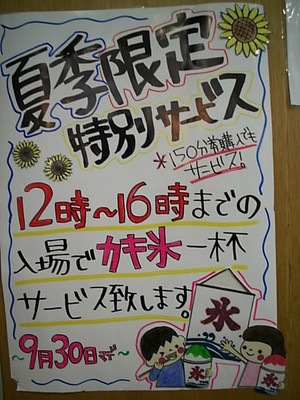 夏季限定
特別サービス
*150分券購入でも
サービス!
12時〜16時までの
入場でカキ氷一杯
サービス致します。
〜9月30日まで〜
氷
氷
氷